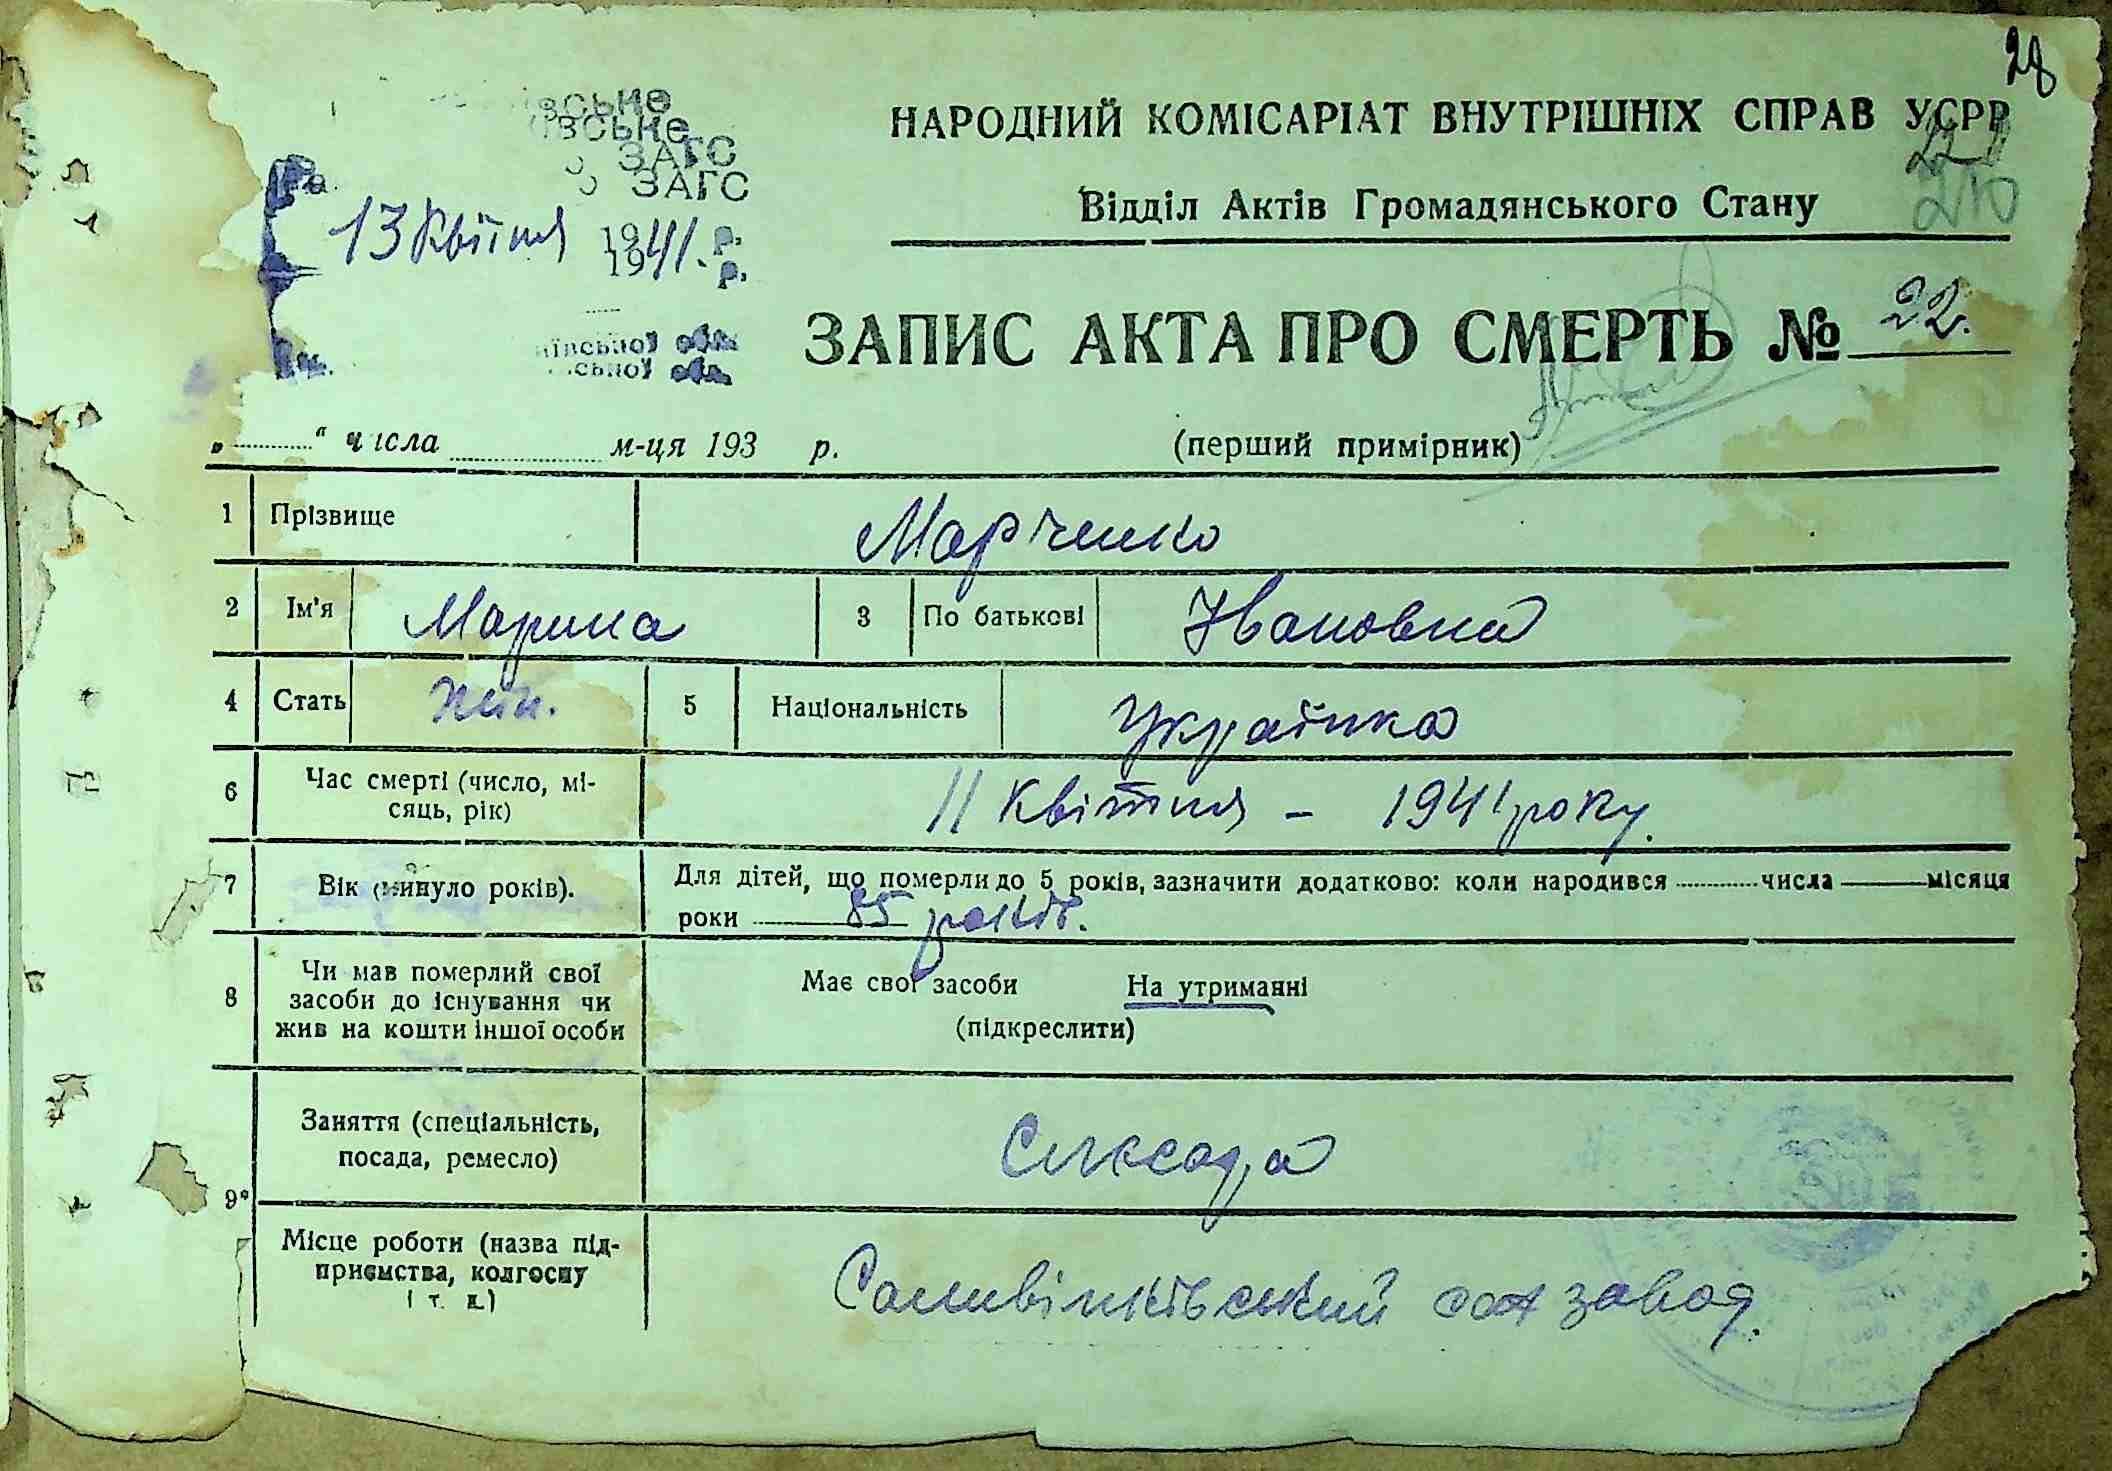 28
вське
вське
ЗАГС
ЗАГС
НАРОДНИЙ КОМІСАРІАТ ВНУТРІШНІХ СПРАВ УСРР
221
Відділ Актів Громадянського Стану
210
13 Квітня 1941 р.
19 р.
ївської обл.
ської обл.
ЗАПИС АКТА ПРО СМЕРТЬ № 22.
„ “ числа м-ця 193 р.
(перший примірник)
1 Прізвище Марченко
2 Ім'я Марина 3 По батькові Івановна
4 Стать жін. 5 Національність Українка
6 Час смерті (число, мі-
сяць, рік) 11 Квітня – 1941 року.
7 Вік (минуло років). Для дітей, що померли до 5 років, зазначити додатково: коли народився числа місяця
роки 85 років.
8 Чи мав померлий свої
засоби до існування чи
жив на кошти іншої особи
Має свої засоби На утриманні
(підкреслити)
9 Заняття (спеціальність,
посада, ремесло)
Місце роботи (назва під-
приємства, колгоспу
і т. д.) Саливінківський сах завод.